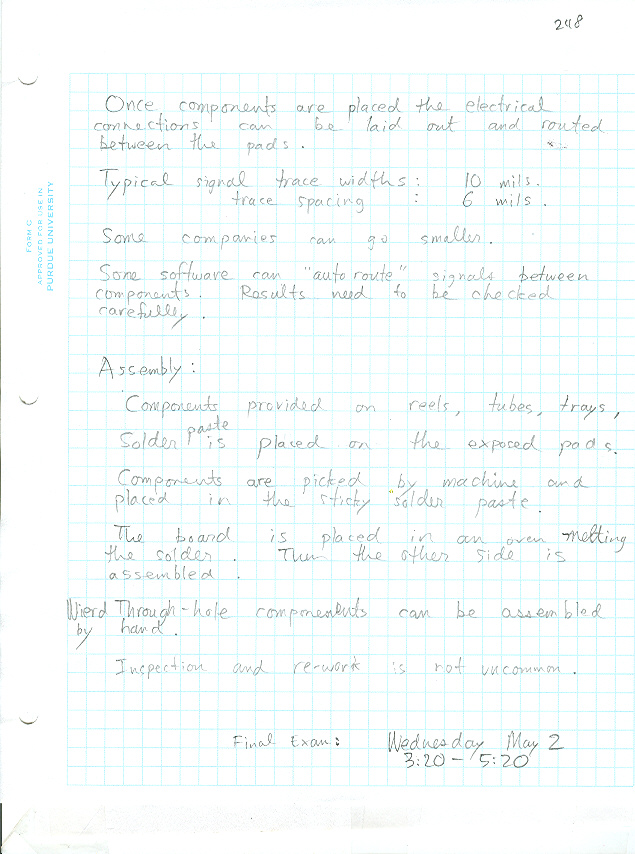 248
Once components are placed the electrical
connections can be laid out and routed
between the pads.
Typical signal trace widths: 10 mils.
trace spacing : 6 mils.
Some companies can go smaller.
Some software can "auto route" signals between
components. Results need to be checked
carefully.
Assembly:
Components provided on reels, tubes, trays,
paste
Solder is placed on the exposed pads.
Components are picked by machine and
placed in the sticky solder paste.
The board is placed in an oven melting
the solder. Then the other side is
assembled.
Wierd Through-hole components can be assembled
by hand.
Inspection and re-work is not uncommon.
Final Exam: Wednesday May 2
3:20 - 5:20
FORM C
APPROVED FOR USE IN
PURDUE UNIVERSITY